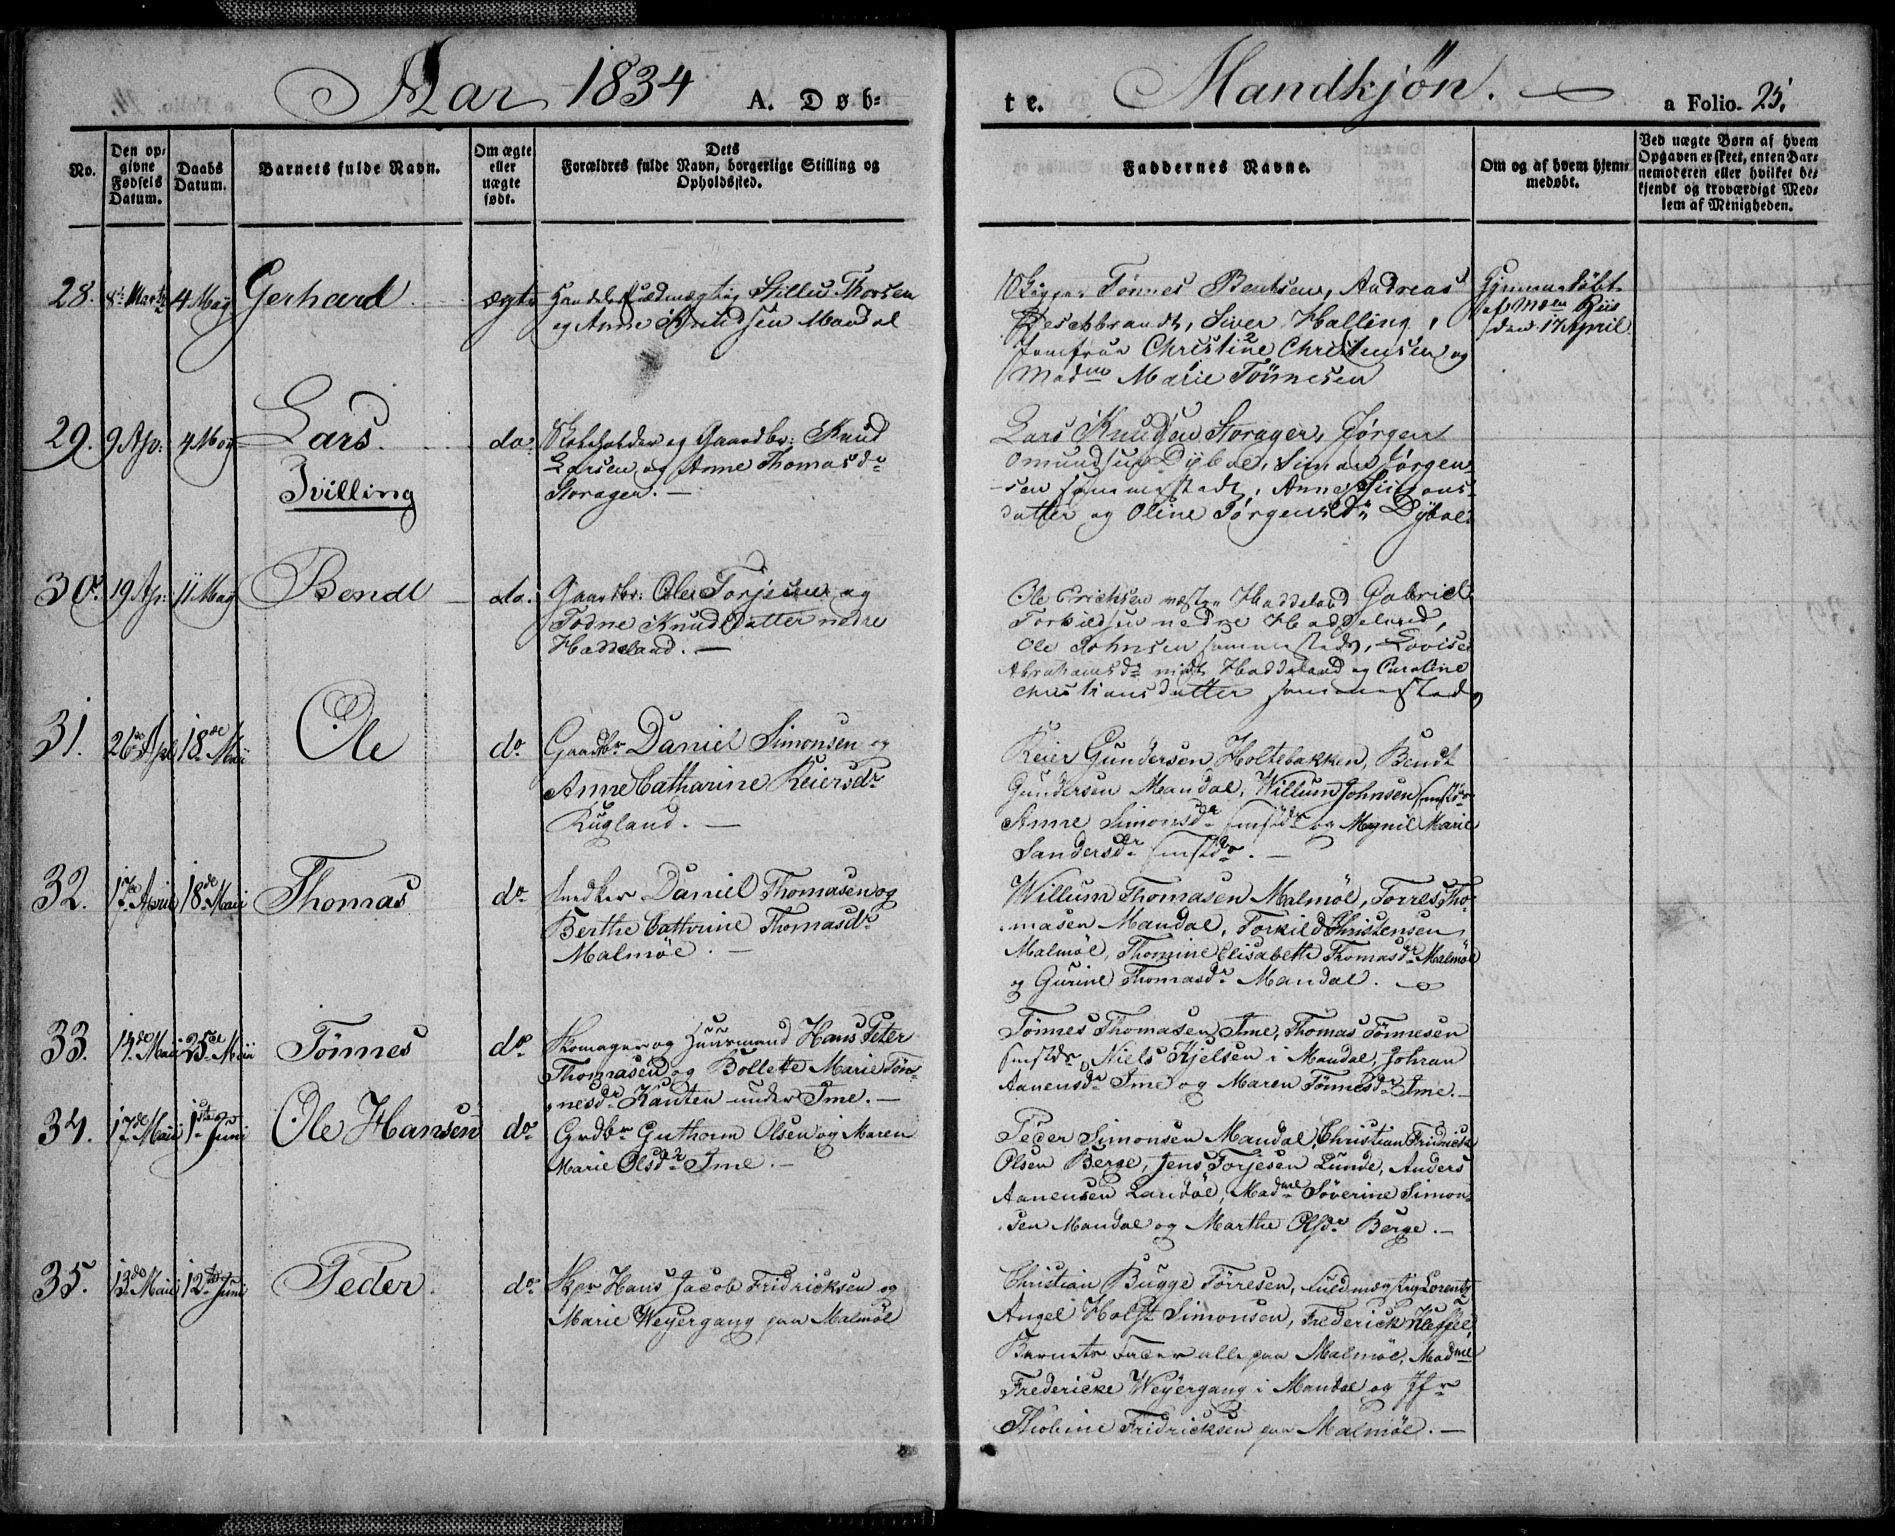 Aar 1834 A. Døb-
te. Mandkjøn. a Folio. 25.
No.
Den op-
givne
Fødsels
Datum.
Daabs
Datum.
Barnets fulde Navn.
Om ægte
eller
uægte
født.
Dets
Forældres fulde Navn, borgerlige Stilling og
Opholdssted.
Faddernes Navne.
Om og af hvem hjem-
medøbt.
Ved uægte Børn af hvem
Opgaven er skeet, enten Bar-
nemoderen eller hvilket be-
kjendt og troværdigt Med-
lem af Menigheden.
28. 8de Martz 4 May Gerhard ægte Handels Thorsen
og Anne Knudsen Mandal
Tønnes Bentsen, Andreas
Sivert Halling,
Jomfrue Christine Christensen og
Madme Marie Tönnesen
Hjemmedøbt
af
den 17 April
29. 9 Apr: 4 May Lars do og Gaardbr: Knud
Tvilling
Larsen og Anne Thomasdr
Storager. —
Lars Knudsen Storager, Jørgen
Omundsen Dyboe, Simon Jørgen-
sen sammestedt, Anne Simons-
datter og Oline Jørgensdr Dyboe
30. 19 Apr: 11 May Bendt do. Gaardbr: Ole Torjesen og
Todne Knudsdatter nedre
Haddeland. —
Ole Erichsen Haddeland Gabriel
Torkildsen nedre Haddeland,
Ole Johnsen sammesteds, Lovise
Abrahamsdr Haddeland og Caroline
Christiansdatter sammesteds
31. 26de Apl 18de Maii Ole do Gaardbr Daniel Simonsen og
Anne Catharine Reiersdr
Kugland. —
Reier Gundersen Holtebakken, Bendt
Gundersen Mandal, Willum Johnsen smstds
Anne Simonsdr smstds og Magnil Marie
Sandersdr smstds. —
32. 17de April 18de Maii Thomas do Snedker Daniel Thomasen og
Berthe Cathrine Thomasdr
Malmöe. —
Willum Thomasen Malmöe, Torres Tho-
masen Mandal, Torkild Christensen
Malmöe, Thomine Elisabeth Thomasdr Malmöe
og Gurine Thomasdr Mandal.
33. 14de Maii 25de Maii Tönnes do Skomager og Huusmand Hans Peter
Thomasen og Bollette Marie Tön-
nesdr Kauten under Ime. —
Tönnes Thomasen Ime, Thomas Tönnesen
smstds, Niels Kjelsen i Mandal, Johan
Aanensdr Ime og Maren Tönnesdr Ime. —
34. 17de Maii 1ste Juni Ole Hansen do Grdbr Guthorm Olsen og Maren
Marie Olsdr Ime. —
Peder Simonsen Mandal, Christian Fridrick
Olsen Berge, Jens Torjesen Lunde, Anders
Aanensen Landöe, Madme Söverine Simon-
sen Mandal og Marthe Olsdr Berge. —
35. 13de Maii 12te Juni Peder do Skpr Hans Jacob Fridricksen og
Marie Weyergang paa Malmöe
Christian Bugge Törresen, Fuldmægtig Lorentz
Angel Holst Simonsen, Frederick
Barnets Fader alle paa Malmöe, Madme
Fredericke Weyergang i Mandal og Jfr
Thobine Fridricksen paa Malmöe. —